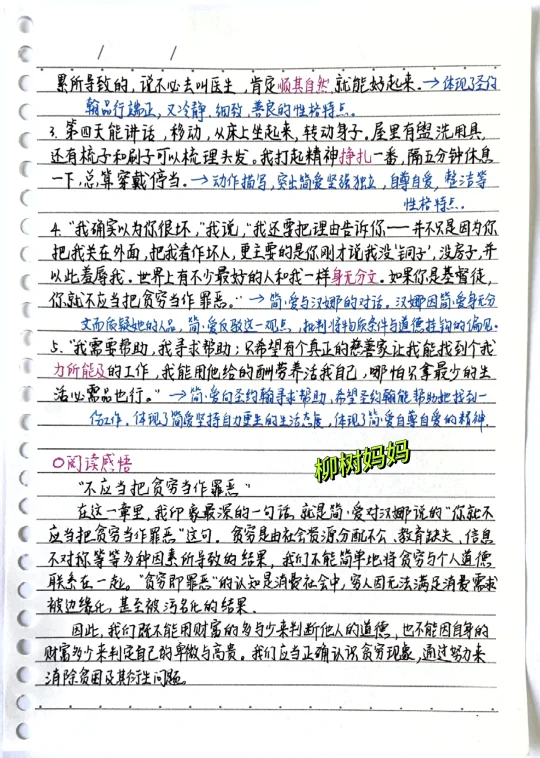 / /
累所导致的，说不必去叫医生，肯定顺其自然，就能好起来。→体现了圣约
翰品行端正，又冷静、细致、善良的性格特点。
3、第四天能讲话，移动，从床上坐起来，转动身子。屋里有盥洗用具，
还有梳子和刷子可以梳理头发。我打起精神挣扎一番，隔五分钟休息
一下，总算穿戴停当。→动作描写，突出简爱坚强独立，自尊自爱，整洁等
性格特点。
4、“我确实以为你很坏，”我说，“我还要把理由告诉你——并不只是因为你
把我关在外面，把我看作坏人，更主要的是你刚才说我没‘铜子’，没房子，并
以此羞辱我。世界上有不少最好的人和我一样身无分文。如果你是基督徒，
你就不应当把贫穷当作罪恶。”→简·爱与汉娜的对话。汉娜因简·爱身无分
文而质疑她的人品，简·爱反驳这一观点，批判将物质条件与道德挂钩的偏见。
5、“我需要帮助，我寻求帮助；只希望有个真正的慈善家让我能找到个我
力所能及的工作，我能用他给的酬劳养活我自己，哪怕只拿最少的生
活必需品也行。”→简·爱向圣约翰寻求帮助，希望圣约翰能帮助她找到一
份工作，体现了简爱坚持自力更生的生活态度，体现了简·爱自尊自爱的精神.
柳树妈妈
○阅读感悟
“不应当把贫穷当作罪恶”
在这一章里，我印象最深的一句话，就是简·爱对汉娜说的“你就不
应当把贫穷当作罪恶”这句。贫穷是由社会资源分配不公、教育缺失、信息
不对称等等多种因素所导致的结果，我们不能简单地将贫穷与个人道德
联系在一起。“贫穷即罪恶”的认知是消费社会中，穷人因无法满足消费需求
被边缘化，甚至被污名化的结果.
因此，我们既不能用财富的多与少来判断他人的道德，也不能因自身的
财富多少来判定自己的卑微与高贵。我们应当正确认识贫穷现象，通过努力来
消除贫困及其衍生问题。